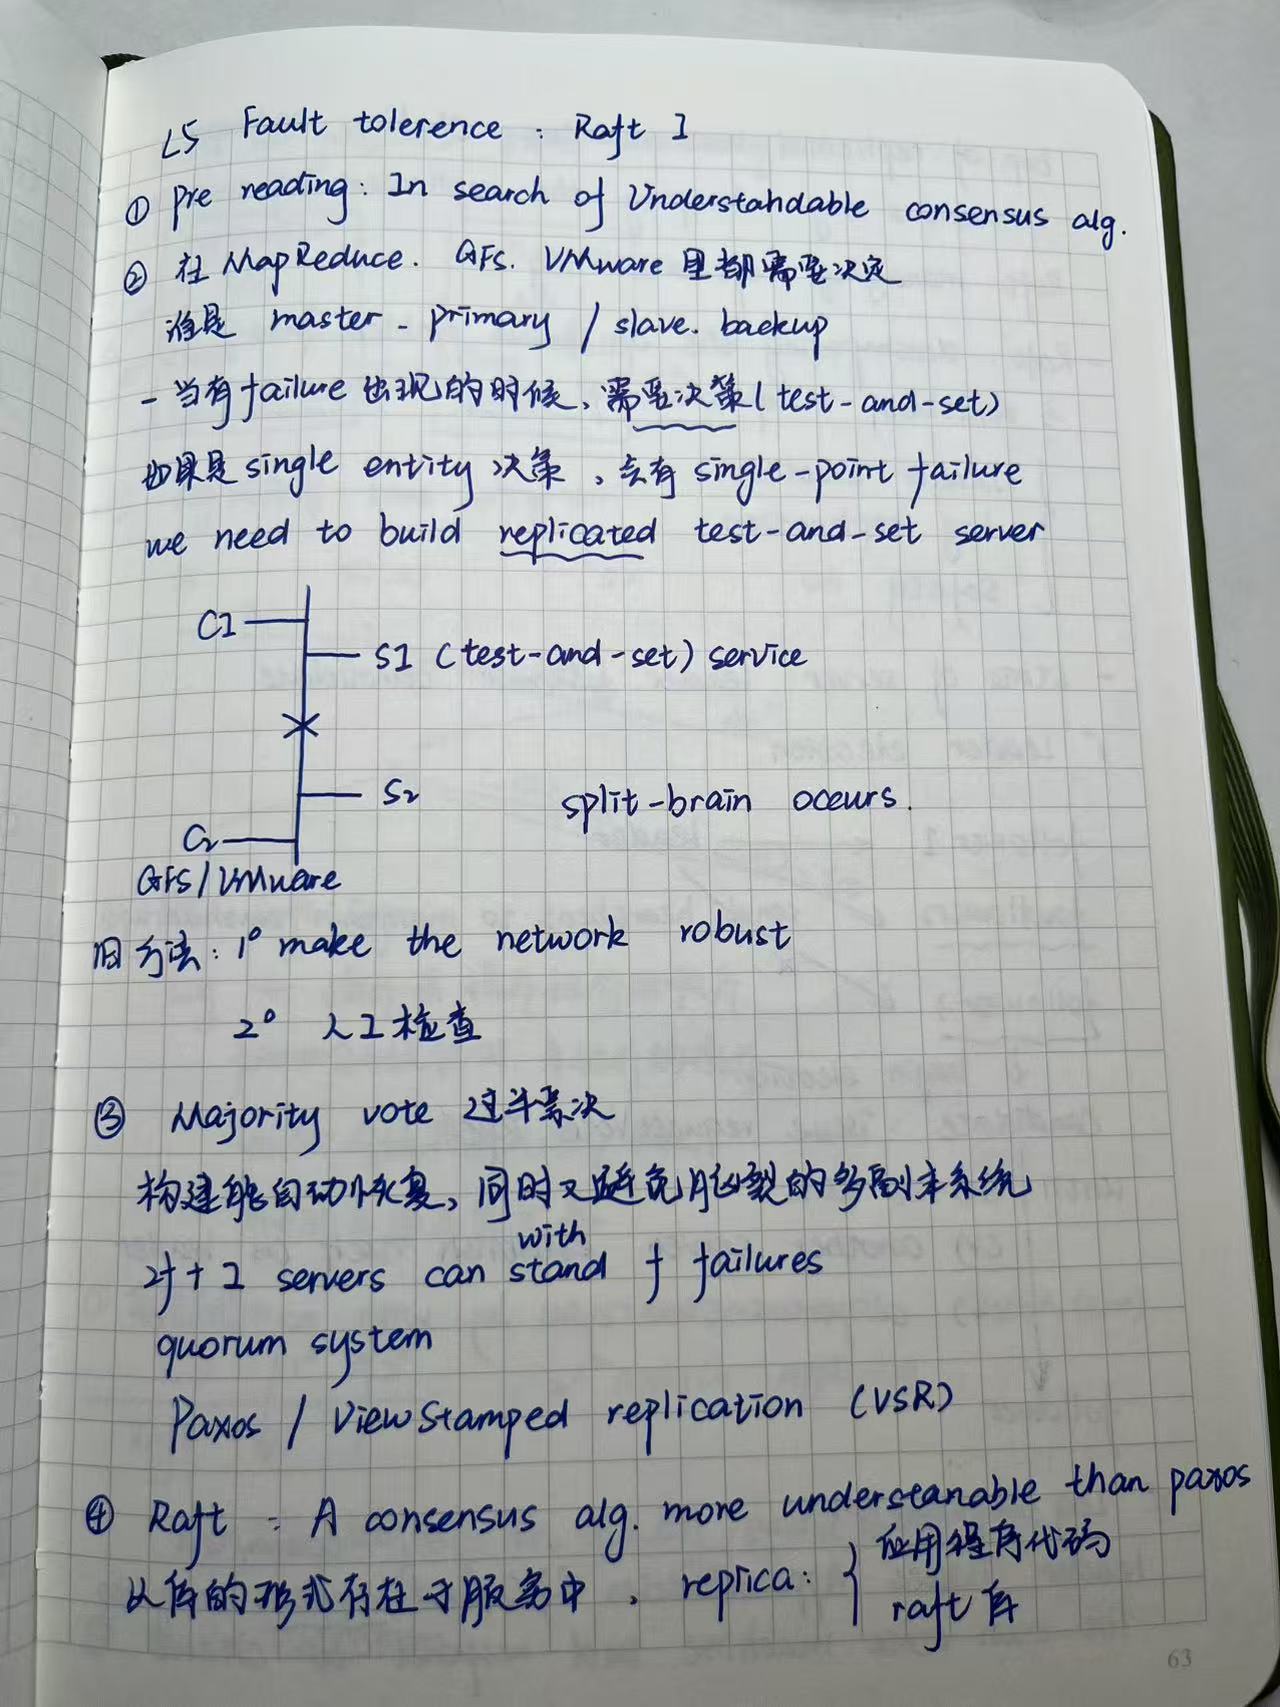 L5 Fault tolerence : Raft I
① Pre reading: In search of Understandable consensus alg.
② 在 MapReduce. GFS. VMware 里都需要决定
谁是 master - primary / slave. backup
- 当有 failure 出现的时候、需要决策(test-and-set)
如果是 single entity 决策、会有 single-point failure
we need to build replicated test-and-set server
C1
S1 (test-and-set) service
S2 split-brain occurs.
C2
GFS/VMware
旧方法: 1° make the network robust
2° 人工检查
③ Majority vote 过半票决
构建能自动恢复, 同时又避免脑裂的多副本系统
with
2f+1 servers can stand f failures
quorum system
Paxos / ViewStamped replication (VSR)
④ Raft : A consensus alg. more understanable than paxos
以库的形式存在于服务中、replica: { 应用程序代码
raft 库
63